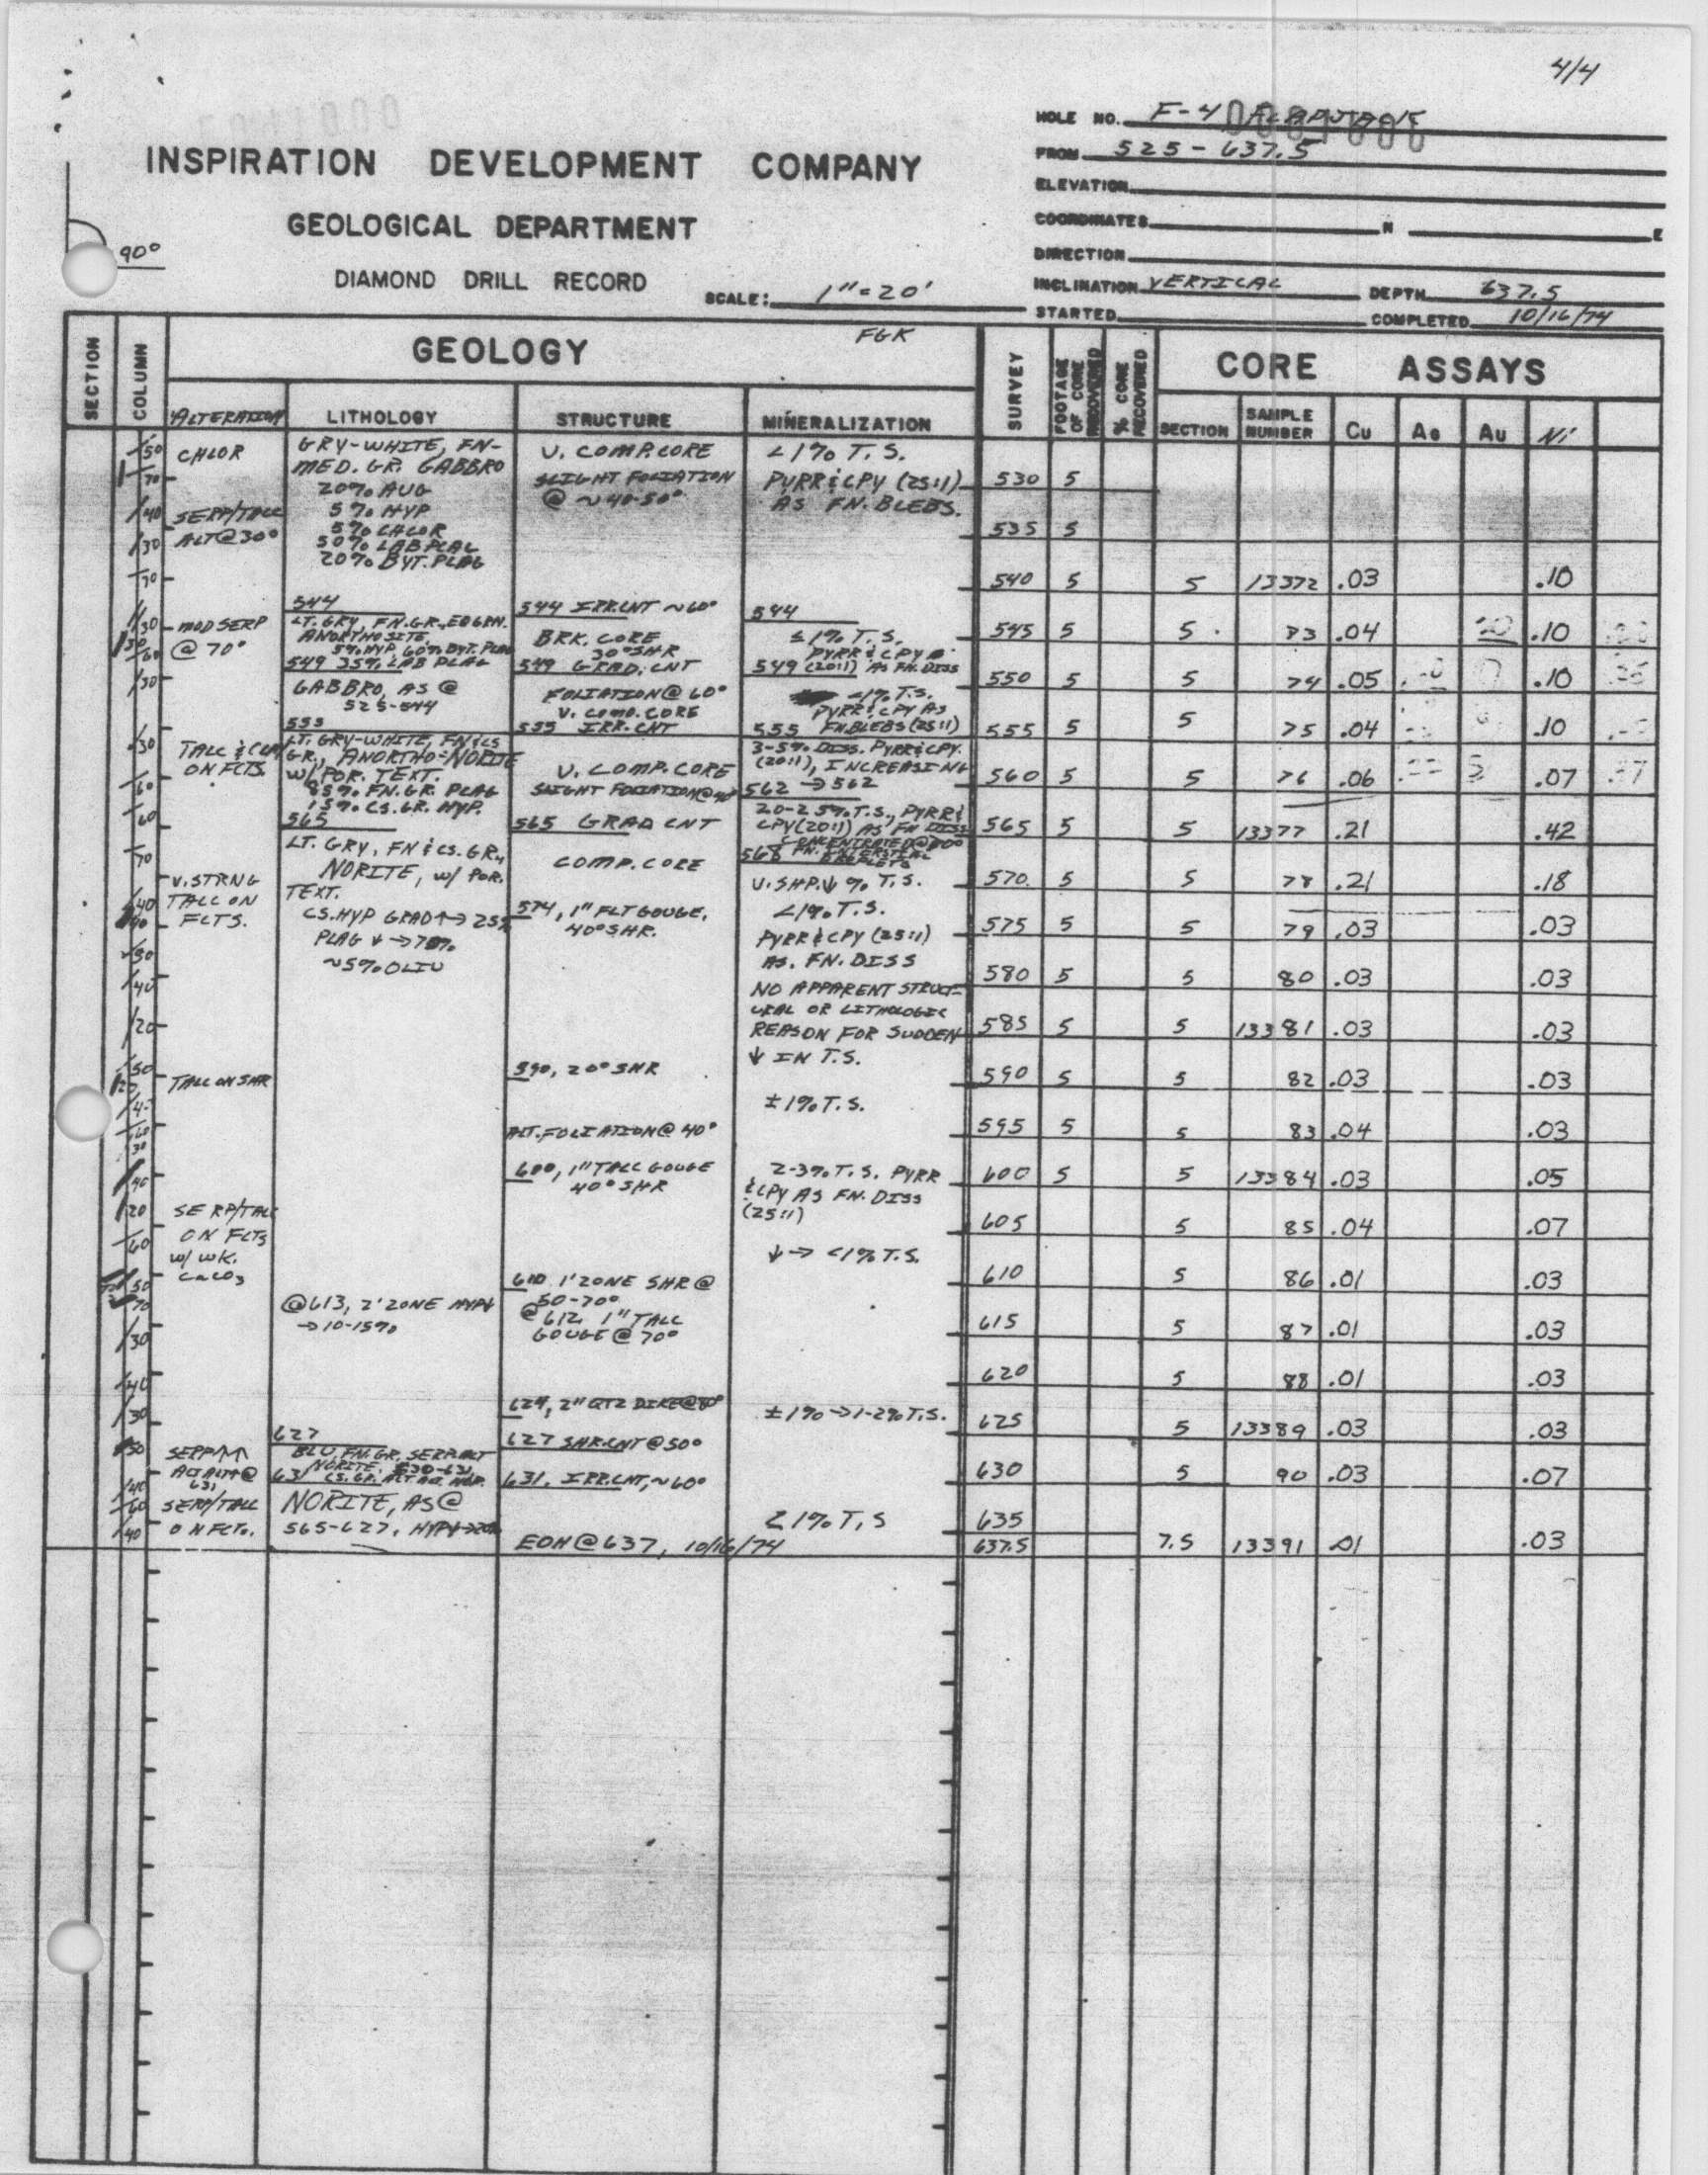 4/4
HOLE NO. F-4
FROM 525-637.5
INSPIRATION DEVELOPMENT COMPANY
ELEVATION
GEOLOGICAL DEPARTMENT
COORDINATES N E
90°
DIRECTION
DIAMOND DRILL RECORD
SCALE: 1"=20'
INCLINATION VERTICAL DEPTH 637.5
STARTED COMPLETED 10/16/74
SECTION
COLUMN
GEOLOGY
FGK
SURVEY
FOOTAGE OF CORE RECOVERED
% CORE RECOVERED
CORE ASSAYS
ALTERATION LITHOLOGY STRUCTURE MINERALIZATION
SECTION SAMPLE NUMBER Cu Ag Au Ni
CHLOR
SERP/TALC
ALT@30°
MOD SERP
@ 70°
TALC & CLAY
ON FCTS.
V. STRNG
TALC ON
FCTS.
TALC ON SHR
SERP/TALC
ON FCTS
w/ WK.
CaCO3
SERP↑↑
631
SERP/TALC
ON FCTS.
GRY-WHITE, FN-
MED. GR. GABBRO
20% AUG
5% HYP
5% CHLOR
50% LAB PLAG
20% BYT. PLAG
544
LT. GRY, FN.GR., EQGRN.
ANORTHOSITE,
5% HYP, 60% BYT. PLAG
549 35% LAB PLAG
GABBRO, AS @
525-544
555
LT. GRY-WHITE, FN & CS
GR., ANORTHO-NORITE
w/ POR. TEXT.
85% FN. GR. PLAG
15% CS. GR. HYP.
565
LT. GRY, FN & CS. GR.,
NORITE, w/ POR.
TEXT.
CS. HYP GRAD↑→25%
PLAG ↓→70%
~5% OLIV
@613, 2' ZONE HYP↓
→10-15%
627
BLU, FN. GR. SERP. ALT
NORITE, 630-631
631 CS. GR.
NORITE, AS @
565-627,
V. COMP. CORE
SLIGHT FOLIATION
@ ~40-50°
544 IRR. CNT ~60°
BRK. CORE
30° SHR
549 GRAD. CNT
FOLIATION @ 60°
V. COMP. CORE
555 IRR. CNT
V. COMP. CORE
SLIGHT FOLIATION@40°
565 GRAD CNT
COMP. CORE
574, 1" FLT GOUGE,
40° SHR.
590, 20° SHR
ALT. FOLIATION@ 40°
600, 1" TALC GOUGE
40° SHR
610 1' ZONE SHR @
50-70°
@612 1" TALC
GOUGE @ 70°
624, 2" QTZ DIKE@80°
627 SHR.CNT @ 50°
631, IRR.CNT, ~60°
EOH @ 637, 10/16/74
<1% T.S.
PYRR & CPY (25:1)
AS FN. BLEBS.
544
≤1% T.S.
PYRR & CPY
549 (20:1) AS FN. DISS
<1% T.S.
PYRR & CPY AS
555 FN. BLEBS (25:1)
3-5% DISS. PYRR & CPY.
(20:1), INCREASING
562 →562
20-25% T.S., PYRR &
CPY (20:1) AS FN DISS
568 FN. INTERSTITIAL
V. SHP. ↓ % T.S.
<1% T.S.
PYRR & CPY (25:1)
AS. FN. DISS
NO APPARENT STRUCT-
URAL OR LITHOLOGIC
REASON FOR SUDDEN
↓ IN T.S.
±1% T.S.
2-3% T.S. PYRR
& CPY AS FN. DISS
(25:1)
↓→ <1% T.S.
±1%→1-2% T.S.
≤1% T.S
530 5
535 5
540 5 5 13372 .03 .10
545 5 5 73 .04 .10
550 5 5 74 .05 .10
555 5 5 75 .04 .10
560 5 5 76 .06 .07
565 5 5 13377 .21 .42
570 5 5 78 .21 .18
575 5 5 79 .03 .03
580 5 5 80 .03 .03
585 5 5 13381 .03 .03
590 5 5 82 .03 .03
595 5 5 83 .04 .03
600 5 5 13384 .03 .05
605 5 85 .04 .07
610 5 86 .01 .03
615 5 87 .01 .03
620 5 88 .01 .03
625 5 13389 .03 .03
630 5 90 .03 .07
635
637.5 7.5 13391 .01 .03